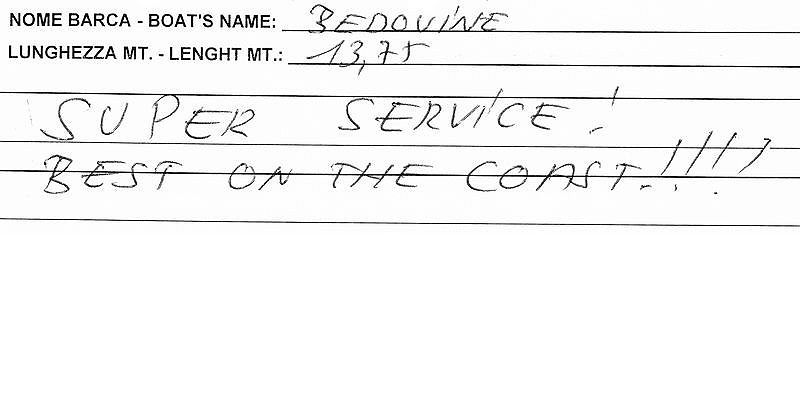 NOME BARCA - BOAT'S NAME: BEDOVINE
LUNGHEZZA MT. - LENGHT MT.: 13,75
SUPER SERVICE!
BEST ON THE COAST.!!!!